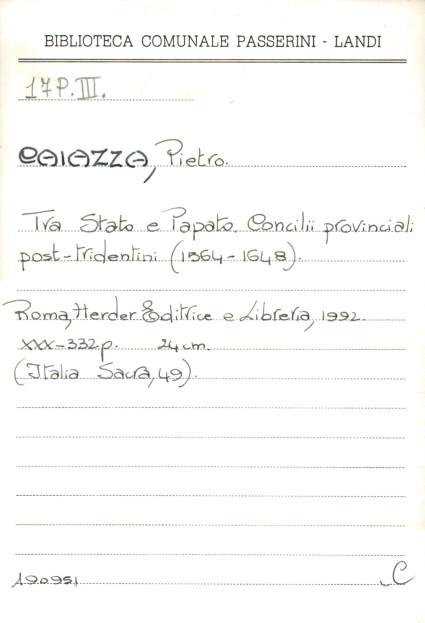 BIBLIOTECA COMUNALE PASSERINI - LANDI
17P.III.
CAIAZZA, Pietro.
Tra Stato e Papato. Concilii provinciali
post-tridentini (1564-1648).
Roma, Herder Editrice e Libreria, 1992.
XXX-332p. 24 cm.
(Italia Sacra, 49).
190951 C